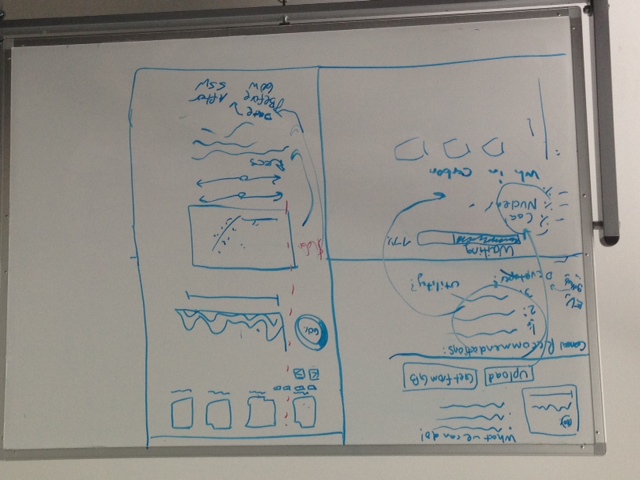 What we can do!
Upload
Get from GB
General Recommendations:
1.
2.
3.
Developer?
utility?
Waiting
17%
- % Coal
- % Nuclear -
- %
Wh in carbon
60%
Recs
Date
Before
60W
After
55W